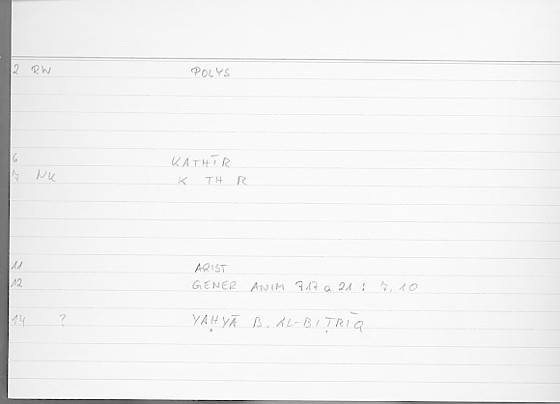 2 RW POLYS
6 KATHĪR
7 NK K TH R
11 ARIST
12 GENER ANIM 717 a 21 : 7, 10
14 ? YAḤYĀ B. AL-BIṬRĪQ